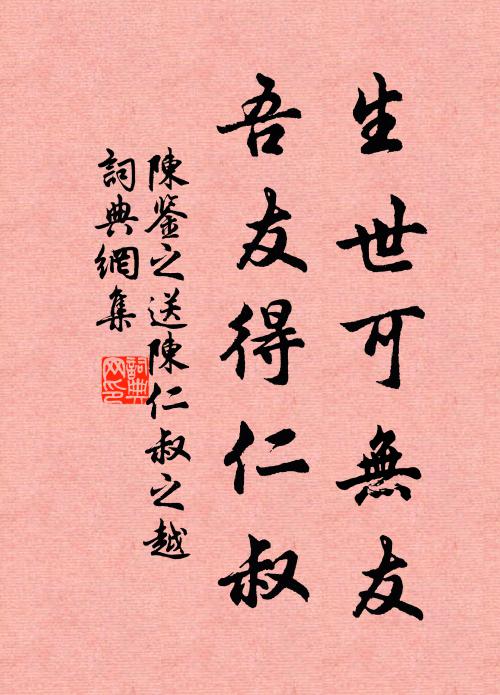 生世可無友
吾友得仁叔
陳鉴之送陳仁叔之越
詞典網集
詞典
网印